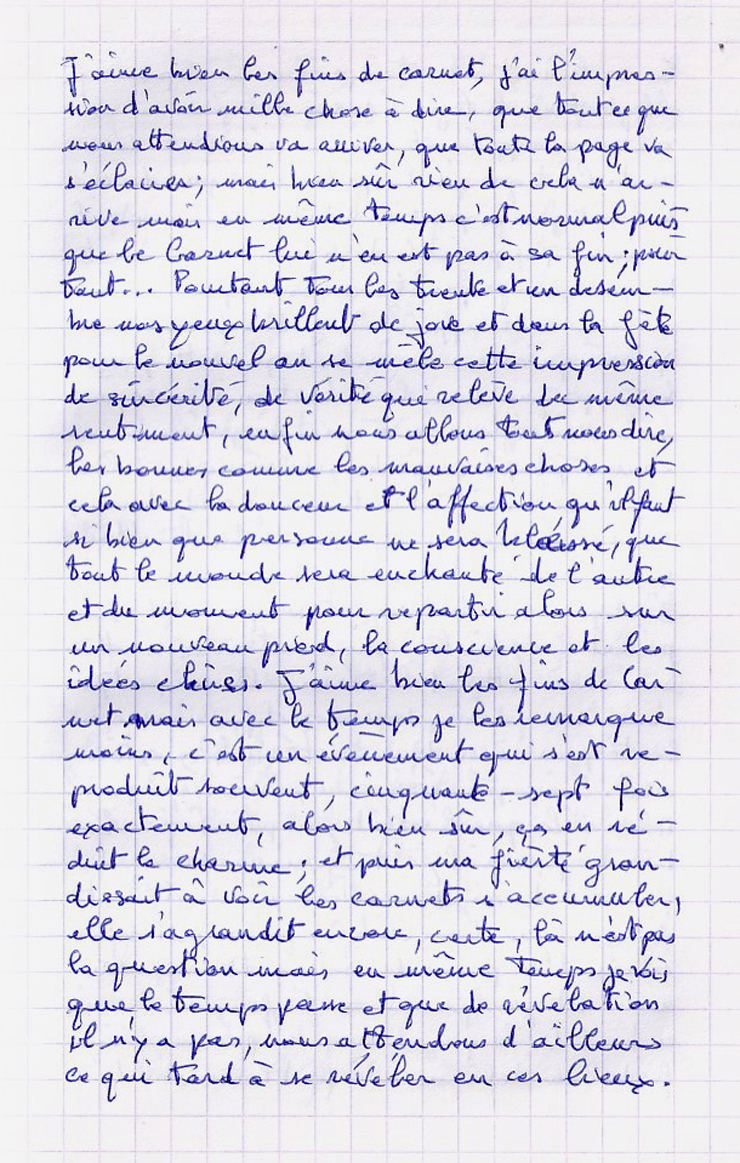 J'aime bien les fins de carnet, j'ai l'impres-
sion d'avoir mille chose à dire, que tout ce que
nous attendions va arriver, que toute la page va
s'éclairer; mais bien sûr rien de cela n'ar-
rive mais en même temps c'est normal puis
que le Carnet lui n'en est pas à sa fin; pour
tant... Pourtant tous les trente et un désem-
bre nos yeux brillent de joie et dans la fête
pour le nouvel an se mêle cette impression
de sincérité, de vérité qui relève du même
sentiment, enfin nous allons tout nous dire,
les bonnes comme les mauvaises choses et
cela avec la douceur et l'affection qu'il faut
si bien que personne ne sera blessé, que
tout le monde sera enchanté de l'autre
et du moment pour repartir alors sur
un nouveau pied, la conscience et les
idées claires. J'aime bien les fins de Car
net mais avec le temps je les remarque
moins, c'est un évènement qui s'est re-
produit souvent, cinquante-sept fois
exactement, alors bien sûr, ça en ré-
duit le charme; et puis ma fierté gran-
dissait à voir les carnets s'accumuler,
elle s'agrandit encore, certe, là n'est pas
la question mais en même temps je vois
que le temps passe et que de révélation
il n'y a pas, nous attendons d'ailleurs
ce qui tard à se révéler en ces lieux.